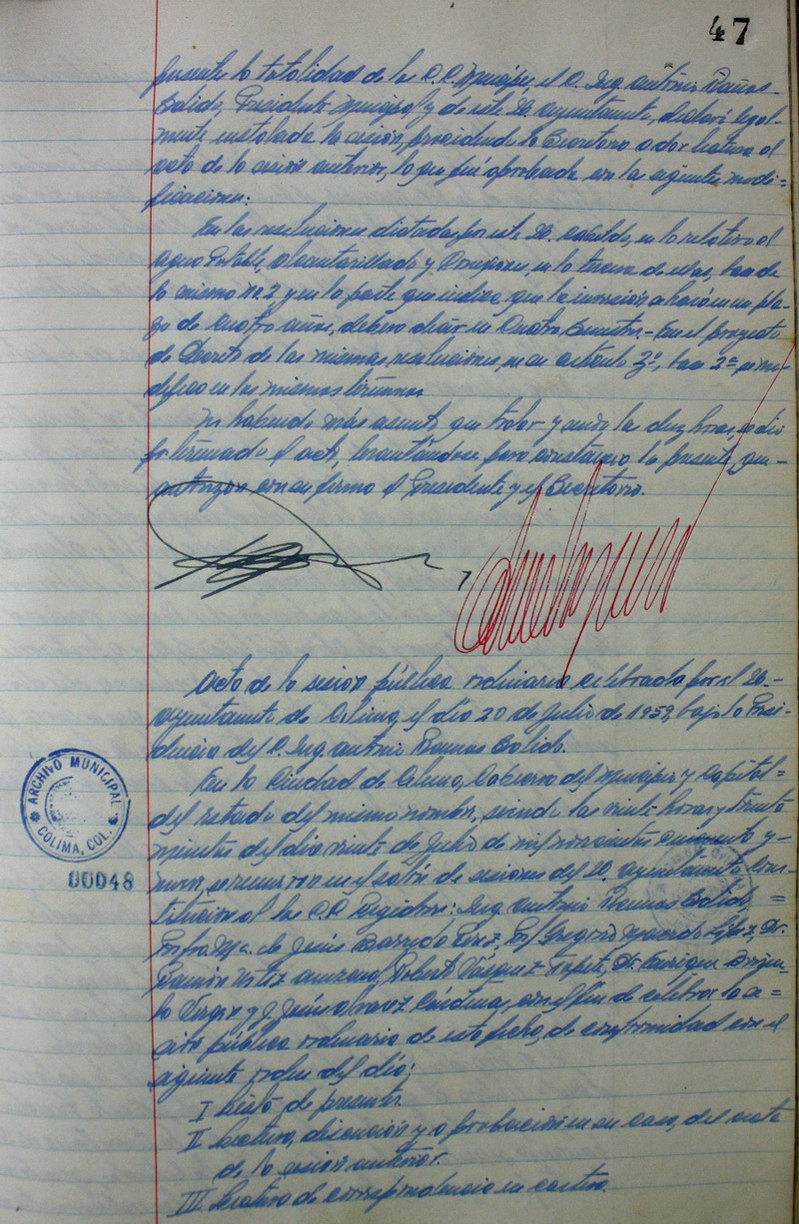 47
presente la totalidad de los C.C. Munícipes, el C. Ing. Antonio Ramos
Salido, Presidente Municipal y de este H. Ayuntamiento, declaró legal-
mente instalada la sesión, procediendo la Secretaria a dar lectura al
acta de la sesión anterior, la que fué aprobada con las siguientes modi=
ficaciones:
En las resoluciones dictadas por este H. Cabildo, en lo relativo al
Agua Potable, Alcantarillado y en la tercera de ellas, base de
la misma No. 2 y en la parte que indica que la inversión se hará en un pla-
zo de Cuatro años, deberá decir en Cuatro Bimestres.- En el proyecto
de Decreto de las mismas resoluciones, en su artículo 2º, base 2ª se mo-
difica en los mismos términos.
No habiendo más asuntos que tratar y siendo las diez horas, se dió
por terminado el acto, levantándose para constancia, la presente, que=
autorizan con su firma el Presidente y el Secretario.
Acta de la sesión pública ordinaria celebrada por el H.-
Ayuntamiento de Colima, el día 20 de Julio de 1959, bajo la Presi-
dencia del C. Ing. Antonio Ramos Salido.
En la Ciudad de Colima, Cabecera del Municipio y Capital=
del Estado del mismo nombre, siendo las veinte horas y treinta
minutos del día veinte de Julio de mil novecientos cincuenta y-
nueve, se reunieron en el salón de sesiones del H. Ayuntamiento Cons-
titucional los C.C. Regidores: Ing. Antonio Ramos Salido, =
Profra. Ma. de Jesús Barreda Pérez, Prof. Gregorio Macedo López, Dr.
Ramón Ortiz Roberto Vásquez Tapia, Dr. Enrique Brizue-
la Virgen y J. Jesús Alvarez Cárdenas, con el fin de celebrar la se=
sión pública ordinaria de esta fecha, de conformidad con el
siguiente orden del día:
I Lista de presentes.
II Lectura, discusión y aprobación en su caso, del acta
de la sesión anterior.
III Lectura de correspondencia en cartera.
ARCHIVO MUNICIPAL
COLIMA, COL.
00048